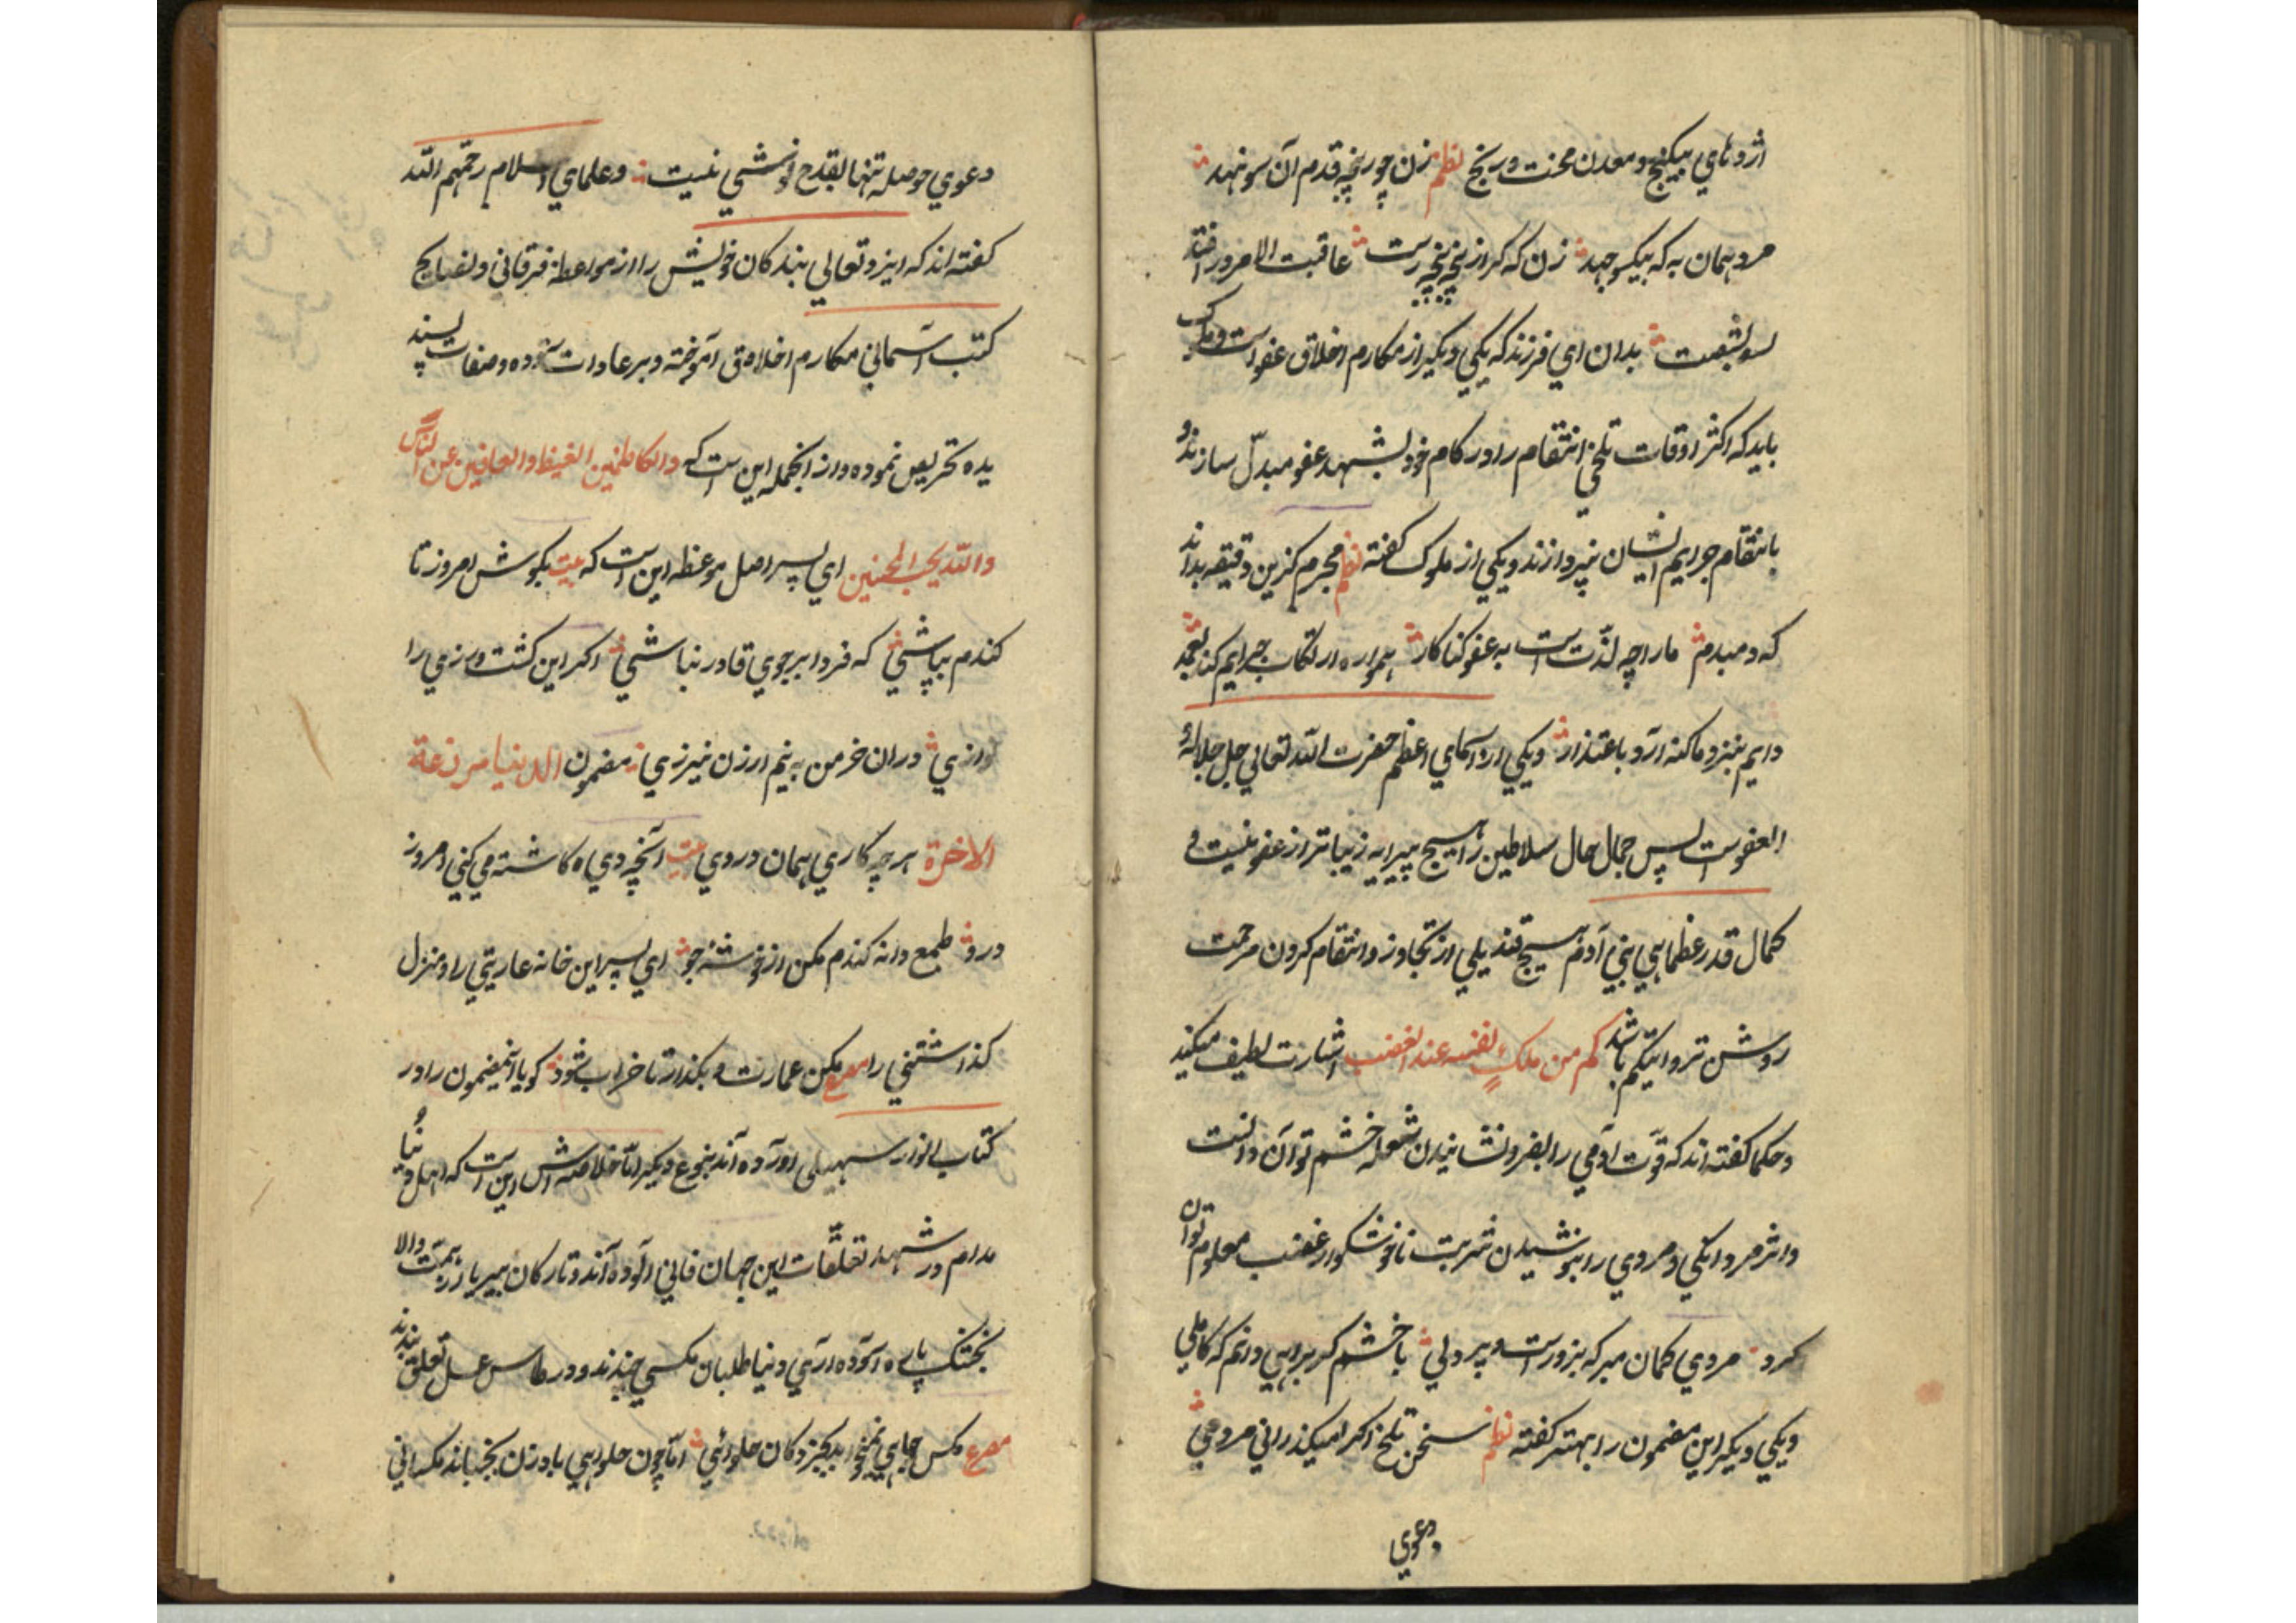 اژدهاي بيگنج و معدن محنت و رنج نظم زن چو رنجه قدم آن سو نهد
مرد همان به كه بيكسو جهد زن كه كر از پنجه رست عاقبت الامر در افتد
بشست بدان اي فرزند كه يكي ديگر از مكارم اخلاق عفو است و ملوك
بايد كه اكثر اوقات تلخي انتقام را در كام خود بشهد عفو مبدّل سازند و
بانتقام جرايم ايشان نپردازند و يكي از ملوك گفته نظم مجرم گر اين دقيقه بداند
كه دمبدم مارا چه لذّت است به عفو گناكار همواره ارتكاب جرايم كند بعمد
دايم بنزد ما گنه آرد باعتذار و يكي از اسماي اعظم حضرت الله تعالي جل جلاله و
العفو است پس جمال حال سلاطين را هيچ پيرايه زيباتر از عفو نيست و
كمال قدر عظماي بني آدم هيچ قنديلي از تجاوز و انتقام كردن مرحمت
روشن تر و باشد كم من ملك نفسه عند الغضب اشارت لطيف ميكند
و حكما گفته اند كه قوّت آدمي را بفرو نشانيدن شعله خشم توان دانست
و اثر مردانگي و مردي را بنوشيدن شربت ناخوشگوار غضب معلوم توان
كرد مردي گمان مبر كه بزور است و پردلي با خشم گر برايي دانم كه كاملي
و يكي ديگر اين مضمون را بهتر گفته نظم سخن تلخ اگر ميگذراني مردي
دعوي
دعوي حوصله تنها بقدح نوشي نيست و علماي اسلام رحمهم الله
گفته اند كه ايزد تعالي بندگان خويش را از مواعظ فرقاني و نصايح
كتب آسماني مكارم اخلاق آموخته و بر عادات ستوده و صفات پسند
يده تحريص نموده و از انجمله اين است كه والكاظمين الغيظ والعافين عن الناس
والله يحب المحسنين اي پسر اصل موعظه اين است كه بيت بكوش امروز تا
گندم بپاشي كه فردا بر جوي قادر نباشي اگر اين كشت ورزي را
نورزي در ان خرمن به نيم ارزن نيرزي مضمون الدنيا مزرعة
الاخرة هر چه كاري همان دروي بيت آنچه دي كاشته مي كني امروز
درو طمع دانه گندم مكن از خوشه جو اي پسر اين خانه عاريتي را و منزل
گذاشتني را مصرع مكن عمارت و بگذار تا خراب شود گويا اينمضمون را در
كتاب انوار سهيلي اورده اند بنوع ديگر امّا خلاصه اش اين است كه اهل دنيا
مدام در شهد تعلّقات اين جهان فاني آلوده اند و تاركان بيريا زهمّت والا
بخنك پاي آسوده آري دنيا طلبان مگسي چندند و در طاس عسل تعلق بندند
مصرع مگس جايي نميخواهد بجز دكان حلوائي امّا چون حلوايي بادزن بجنباند مگساني